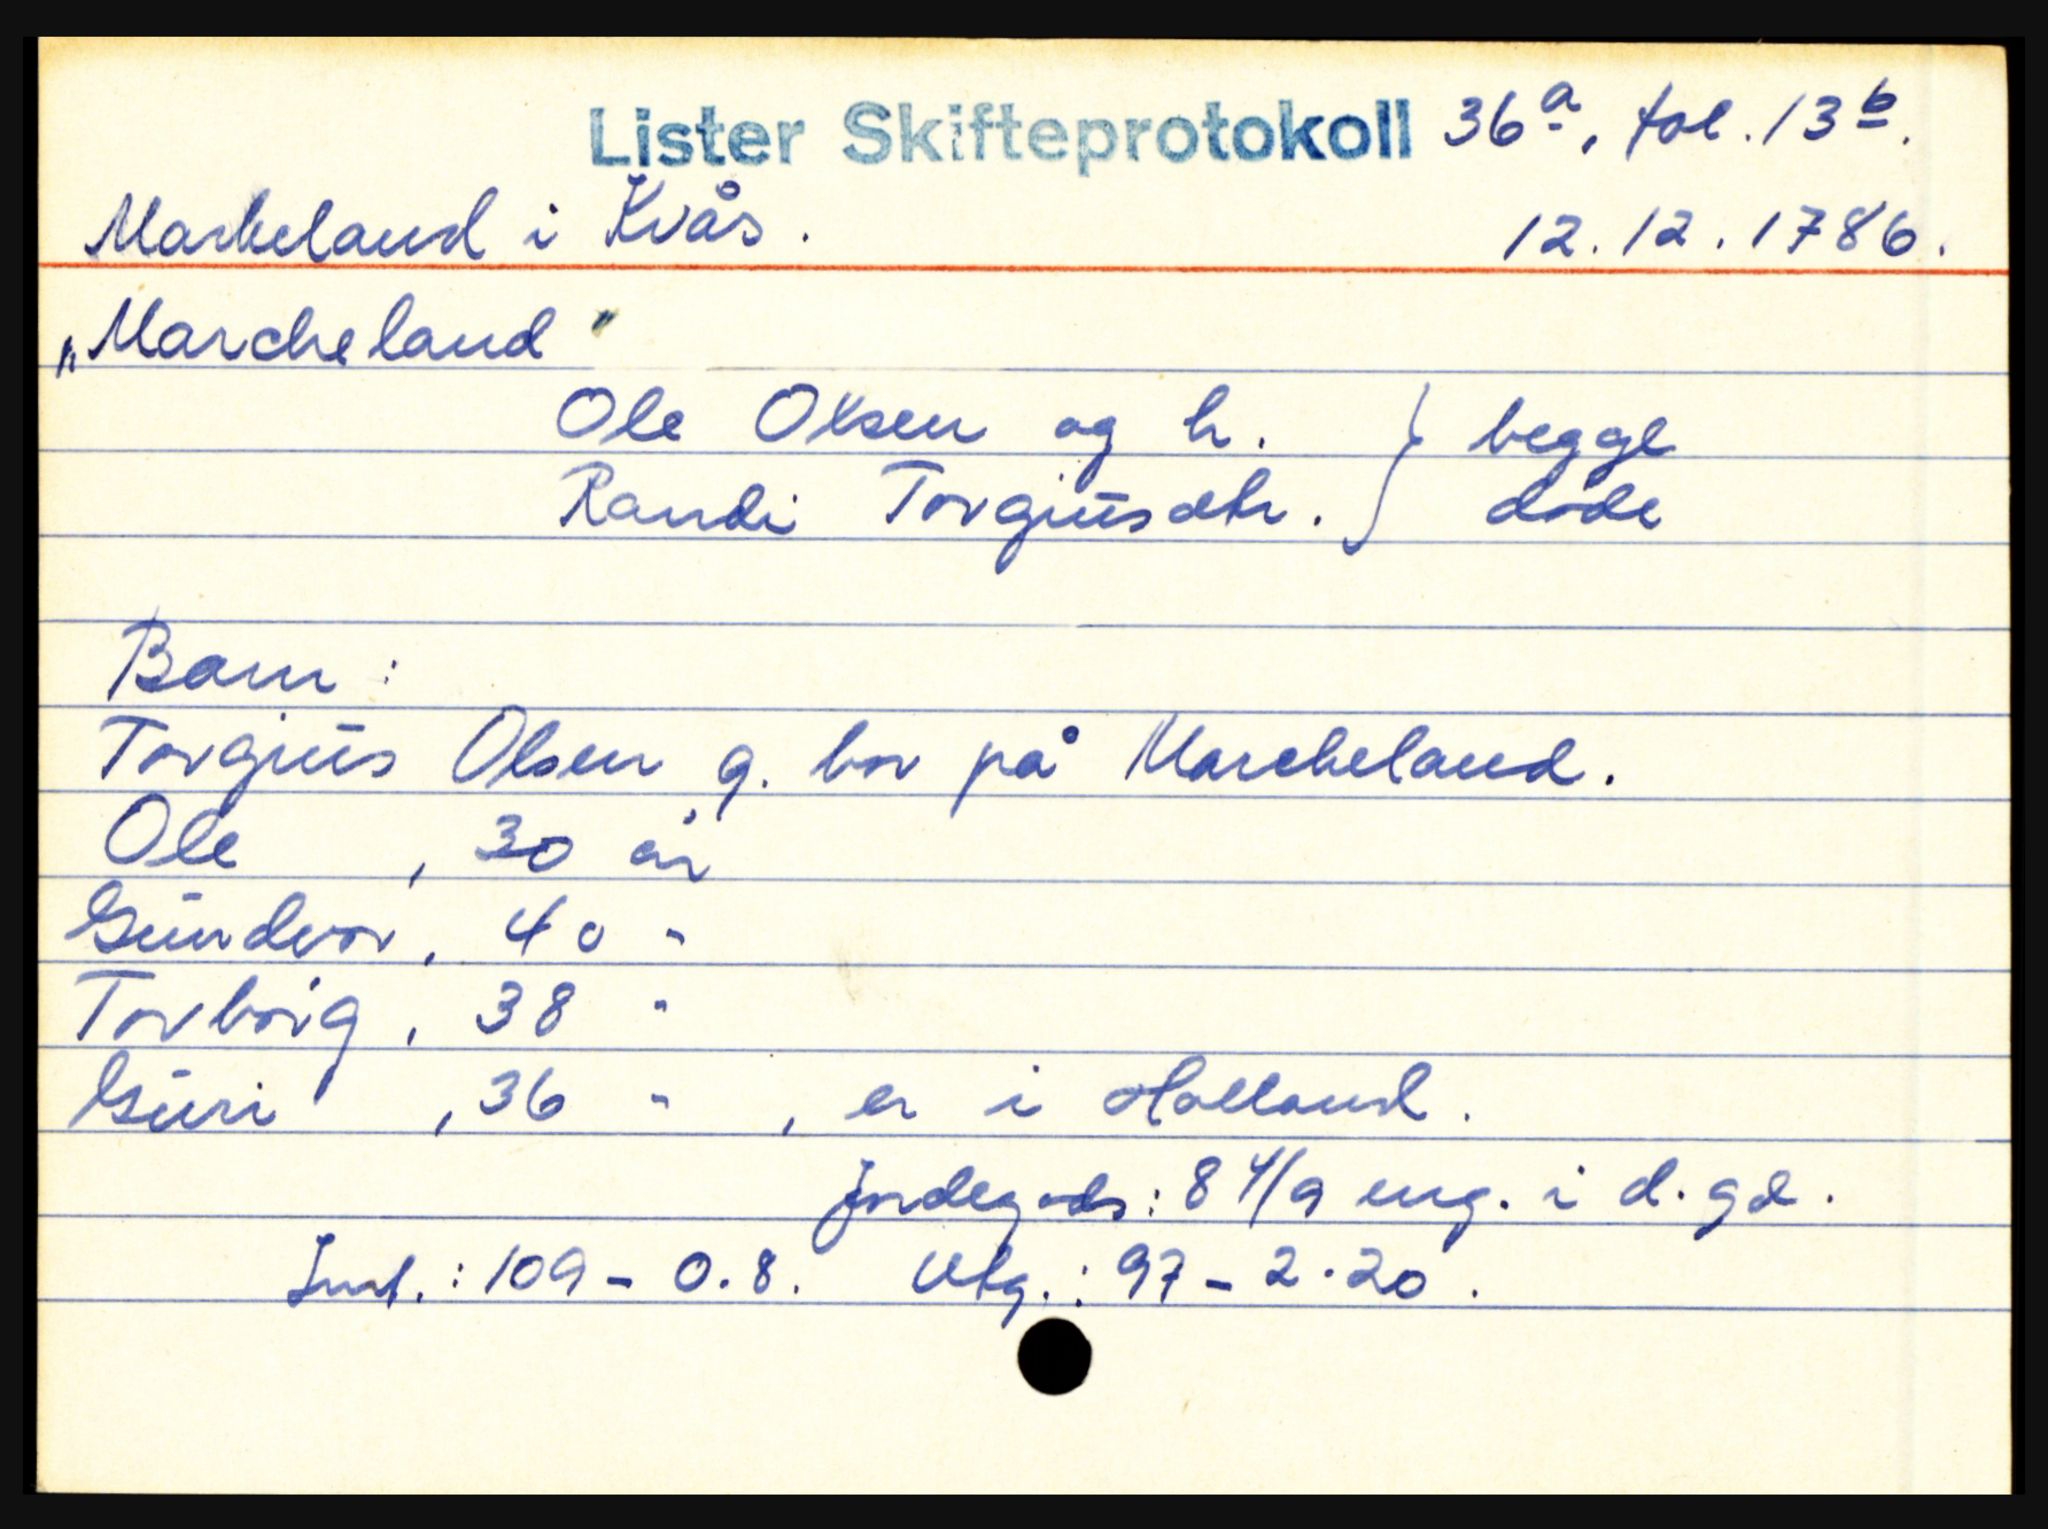 Lister Skifteprotokoll 36ª, fol. 13ᵇ.
Markeland i Kvås. 12.12.1786.
„Marcheland"
Ole Olsen og h. } begge
Randi Torgiusdtr. } døde
Barn:
Torgius Olsen g. bor på Marcheland.
Ole , 30 år
Gundvor, 40 "
Torborg, 38 "
Guri , 36 " , er i Holland.
Jordegods: 8 4/9 eng. i d. gd.
Innt.: 109 - 0.8. Utg.: 97 - 2.20.